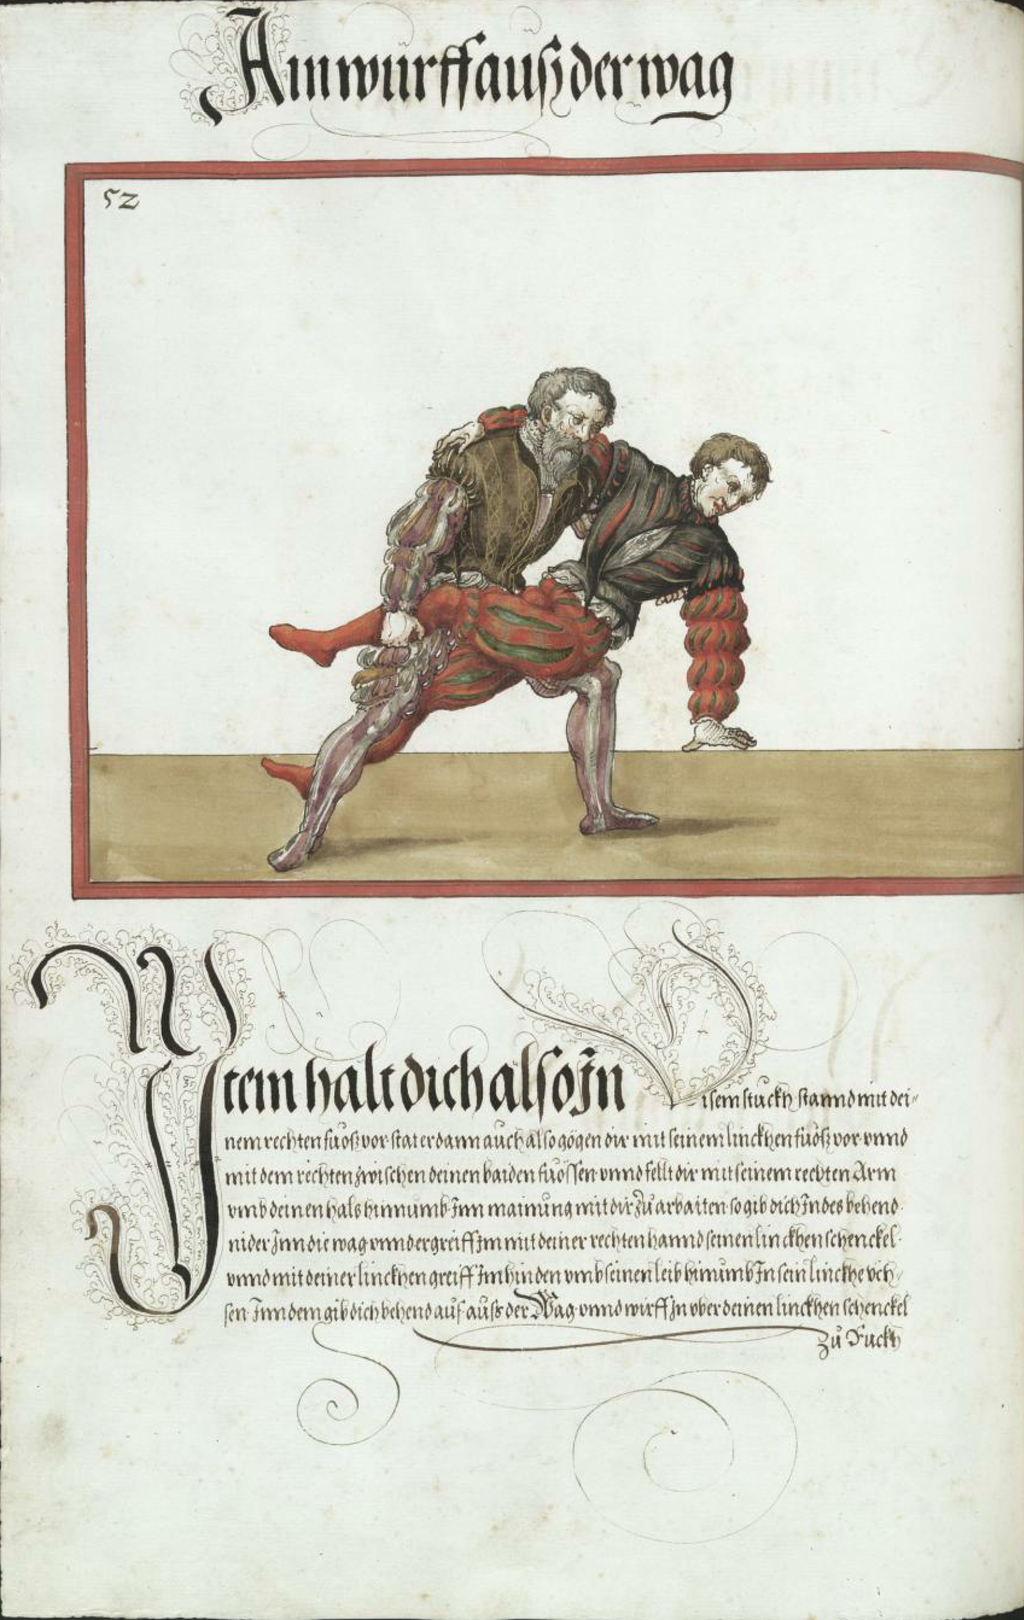 Ain wurff auß der wag
52
Item halt dich also Jn Disem stuckh stannd mit dei-
nem rechten fuoß vor stat er dann auch also gögen dir mit seinem linckhen fuoß vor vnnd
mit dem rechten zwischen deinen baiden fuossen vnnd fellt dir mit seinem rechten Arm
vmb deinen hals hinnumb Inn mainung mit dir zu arbaiten so gib dich Indes behend
nider Jnn die wag vnnd ergreiff Im mit deiner rechten hannd seinen linckhen schenckel
vnnd mit deiner linckhen greiff Im hinden vmb seinen leib hinumb In sein linckhe vch-
sen Inn dem gib dich behend auf auß der Wag vnnd wirff Jn vber deinen linckhen schenckel
zu Ruckh